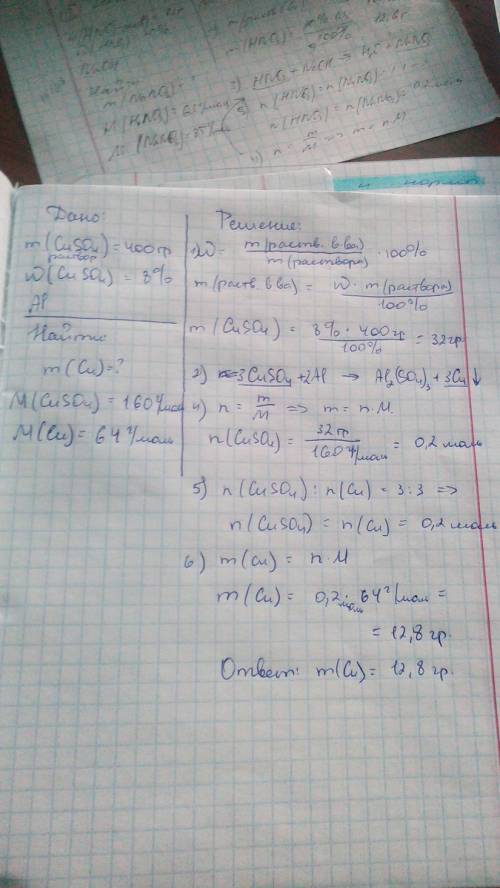 m(HNO₃)=
100%
Найти
NaOH
HNO₃ + NaOH →
4) n = m/M => m = n·M
и нормал
Дано:
m (CuSO₄) = 400 гр
раствор
ω (CuSO₄) = 8%
Al
Найти:
m (Cu) = ?
M (CuSO₄) = 160 г/моль
M (Cu) = 64 г/моль
Решение:
1) ω = m(раств. в ва) / m(раствора) · 100%
m(раств. в ва) = ω · m(раствора) / 100%
m (CuSO₄) = 8% · 400 гр / 100% = 32 гр.
2) 3CuSO₄ + 2Al → Al₂(SO₄)₃ + 3Cu↓
4) n = m/M => m = n·M.
n(CuSO₄) = 32 гр / 160 г/моль = 0,2 моль
5) n (CuSO₄) : n (Cu) = 3:3 =>
n (CuSO₄) = n (Cu) = 0,2 моль
6) m (Cu) = n·M
m (Cu) = 0,2 моль · 64 г/моль =
= 12,8 гр.
Ответ: m (Cu) = 12,8 гр.